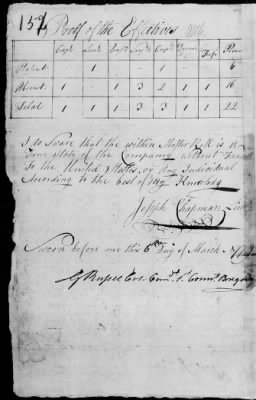 157 Proof of the Effectives
Capt Lieut Ens Serjt Corpl Drum Fifer
Present 1 1 1 6
Absent 1 1 3 2 1 16
Total 1 1 1 3 3 1 22
I do Sware that the within Muster Roll is a
True state of the Company without Fraud
To the United States, or any Individual
According to the best of My Knowledg
Joseph Chapman Lieut
Sworn before me this 6th Day of March
G Russel Col Comdt